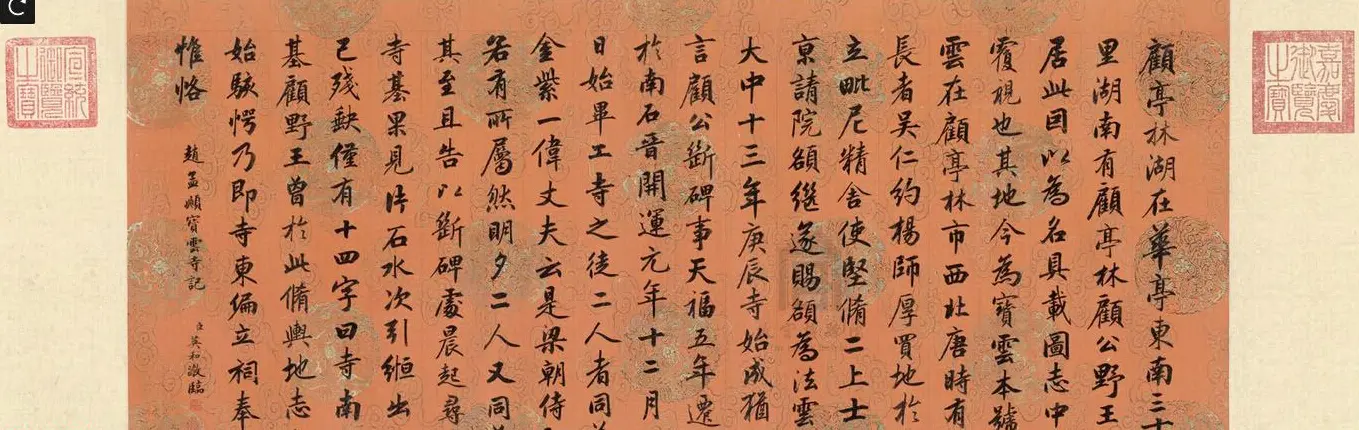 嘉慶御覽之寶
顧亭林湖在華亭東南三十
里湖南有顧亭林顧公野王
居此因以為名具載圖志中
覆視也其地今為寶雲本號
雲在顧亭林市西北唐時有
長者吳仁約楊師厚買地於
立毗尼精舍使堅脩二上士
京請院額繼遂賜額為法雲
大中十三年庚辰寺始成猶
言顧公斷碑事天福五年遷
於南石晉開運元年十二月
日始畢工寺之徒二人者同
金紫一偉丈夫云是梁朝侍
若有所屬然明夕二人又同
其至且告以斷碑處晨起尋
寺基果見片石水次引縆出
已殘缺僅有十四字曰寺南
基顧野王曾於此脩輿地志
始駭愕乃即寺東偏立祠奉
惟恪
趙孟頫寶雲寺記
臣英和敬臨
宣統御覽之寶